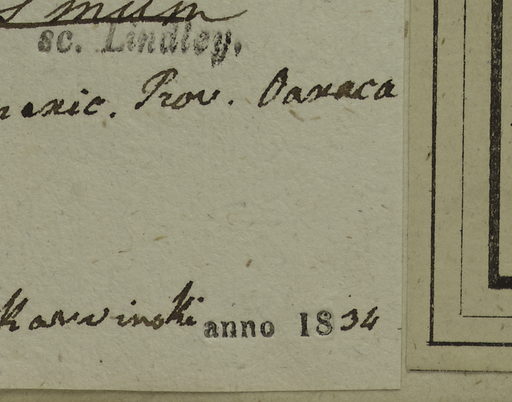 smum
sc. Lindley.
Prov. Oaxaca
Karwinski anno 1834